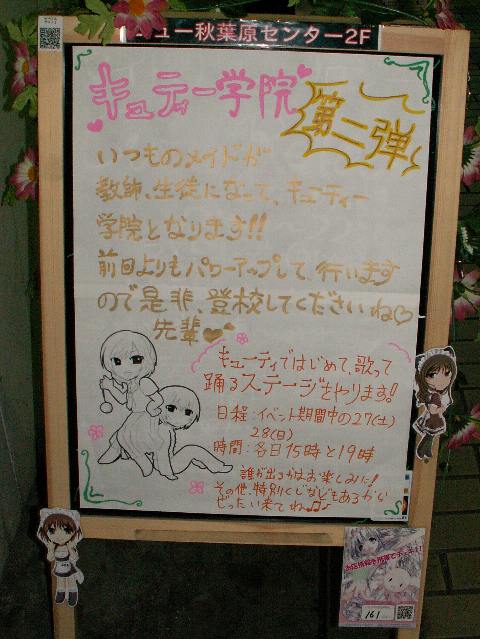 ニュー秋葉原センター2F
キューティー学院
第二弾
いつものメイドが
教師、生徒になって、キューティー
学院となります!!
前回よりもパワーアップして、行います
ので是非、登校してくださいね♡
先輩♥
キューティではじめて、歌って
踊るステージをやります!
日程:イベント期間中の27(土)
28(日)
時間:各日15時と19時
誰が出るかはお楽しみに!
その他、特別くじなどもあるから
ぜったい来てね♪♪
161